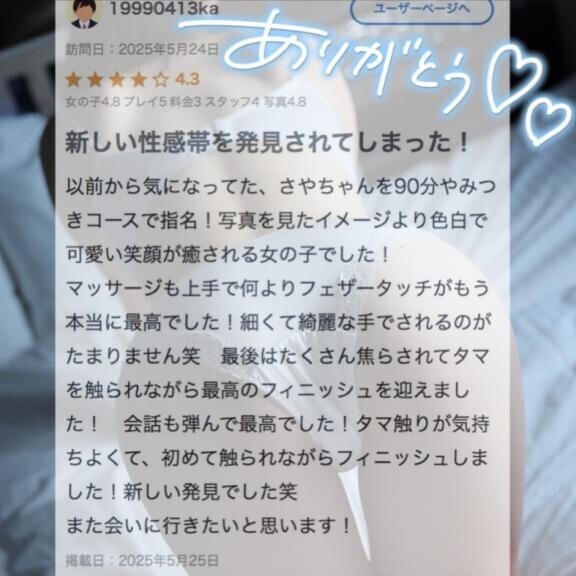 19990413ka
ユーザーページへ
訪問日：2025年5月24日
ありがとう♡♡
★★★★☆ 4.3
女の子4.8 プレイ5 料金3 スタッフ4 写真4.8
新しい性感帯を発見されてしまった！
以前から気になってた、さやちゃんを90分やみつ
きコースで指名！写真を見たイメージより色白で
可愛い笑顔が癒される女の子でした！
マッサージも上手で何よりフェザータッチがもう
本当に最高でした！細くて綺麗な手でされるのが
たまりません笑　最後はたくさん焦らされてタマ
を触られながら最高のフィニッシュを迎えまし
た！　会話も弾んで最高でした！タマ触りが気持
ちよくて、初めて触られながらフィニッシュしま
した！新しい発見でした笑
また会いに行きたいと思います！
掲載日：2025年5月25日